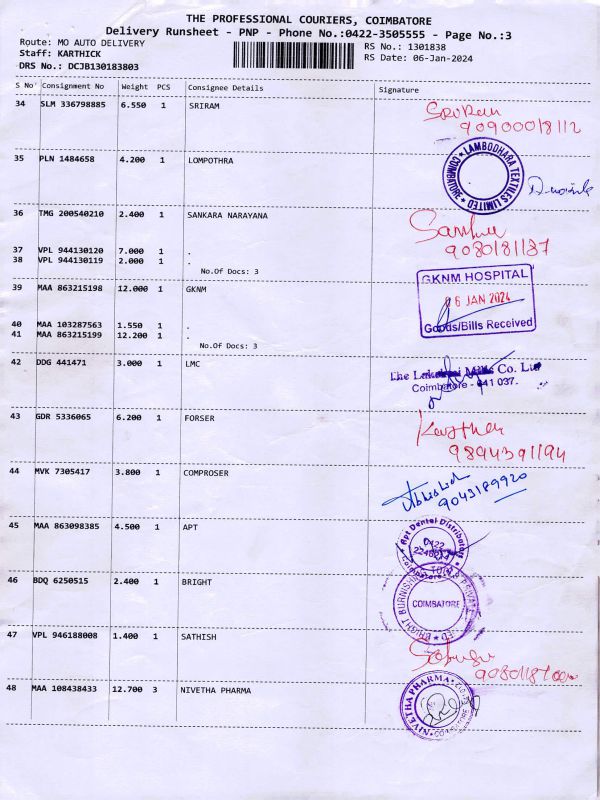 THE PROFESSIONAL COURIERS, COIMBATORE
Delivery Runsheet - PNP - Phone No.:0422-3505555 - Page No.:3
Route: MO AUTO DELIVERY
RS No.: 1301838
Staff: KARTHICK
RS Date: 06-Jan-2024
DRS No.: DCJB130183803
S No Consignment No Weight PCS Consignee Details Signature
34 SLM 336798885 6.550 1 SRIRAM
35 PLN 1484658 4.200 1 LOMPOTHRA
LAMBODHARA TEXTILES LIMITED
COIMBATORE
36 TMG 200540210 2.400 1 SANKARA NARAYANA
9080181137
37 VPL 944130120 7.000 1 .
38 VPL 944130119 2.000 1 .
No.Of Docs: 3
39 MAA 863215198 12.000 1 GKNM
GKNM HOSPITAL
06 JAN 2024
Goods/Bills Received
40 MAA 103287563 1.550 1 .
41 MAA 863215199 12.200 1 .
No.Of Docs: 3
42 DDG 441471 3.000 1 LMC
The Lakshmi Mills Co. Ltd
Coimbatore - 641 037.
43 GDR 5336065 6.200 1 FORSER
Karthick
9894391194
44 MVK 7305417 3.800 1 COMPROSER
Abhishek
9043189920
45 MAA 863098385 4.500 1 APT
Apt Dental Distributors
0422
Coimbatore
46 BDQ 6250515 2.400 1 BRIGHT
COIMBATORE
47 VPL 946188008 1.400 1 SATHISH
48 MAA 108438433 12.700 3 NIVETHA PHARMA
NIVETHA PHARMA